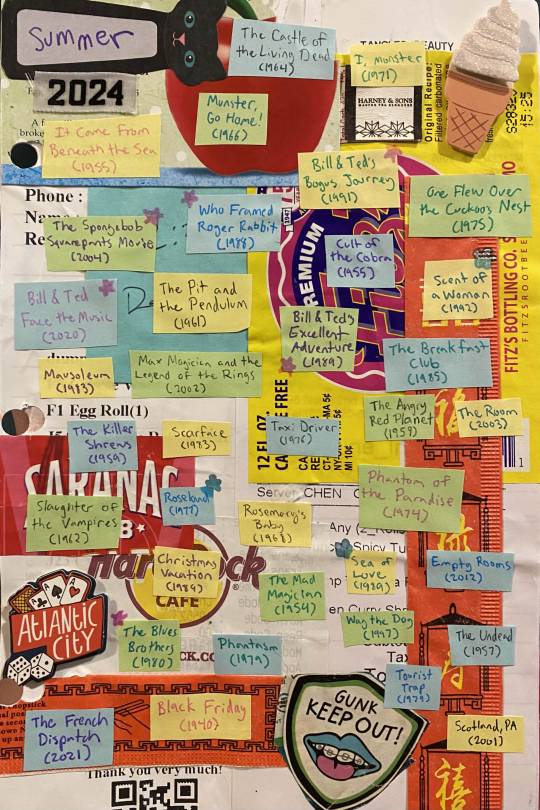 Summer
2024
The Castle of
the Living Dead
(1964)
TANGLED BEAUTY
I, monster
(1971)
HARNEY & SONS
MASTER TEA BLENDERS
Original Recipe:
Filtered carbonated
15:25
Munster,
Go Home!
(1966)
It Came From
Beneath the Sea
(1955)
Bill & Ted's
Bogus Journey
(1991)
One Flew Over
the Cuckoo's Nest
(1975)
Phone :
The Spongebob
Squarepants Movie
(2004)
Who Framed
Roger Rabbit
(1988)
PREMIUM
Cult of
the Cobra
(1955)
Scent of
a Woman
(1992)
FITZ'S BOTTLING CO.
FITZSROOTBEER
Bill & Ted
Face the Music
(2020)
The Pit and
the Pendulum
(1961)
Bill & Ted's
Excellent
Adventure
(1989)
The Breakfast
Club
(1985)
Mausoleum
(1983)
Max Magician and the
Legend of the Rings
(2002)
F1 Egg Roll(1)
12 FL. OZ.
CAFFEINE FREE
The Angry
Red Planet
(1959)
The Room
(2003)
The Killer
Shrews
(1959)
Scarface
(1983)
Taxi Driver
(1976)
SARANAC
Slaughter of
the Vampires
(1962)
Roseland
(1977)
Rosemary's
Baby
(1968)
Server: CHEN
Phantom of
the Paradise
(1974)
Hard Rock
CAFE
Christmas
Vacation
(1989)
The Mad
Magician
(1954)
Sea of
Love
(1989)
Empty Rooms
(2012)
ATLANTIC
CITY
The Blues
Brothers
(1980)
Phantasm
(1979)
Wag the Dog
(1997)
The Undead
(1957)
Tax
Tourist
Trap
(1979)
The French
Dispatch
(2021)
Black Friday
(1940)
GUNK
KEEP OUT!
Scotland, PA
(2001)
Thank you very much!
福